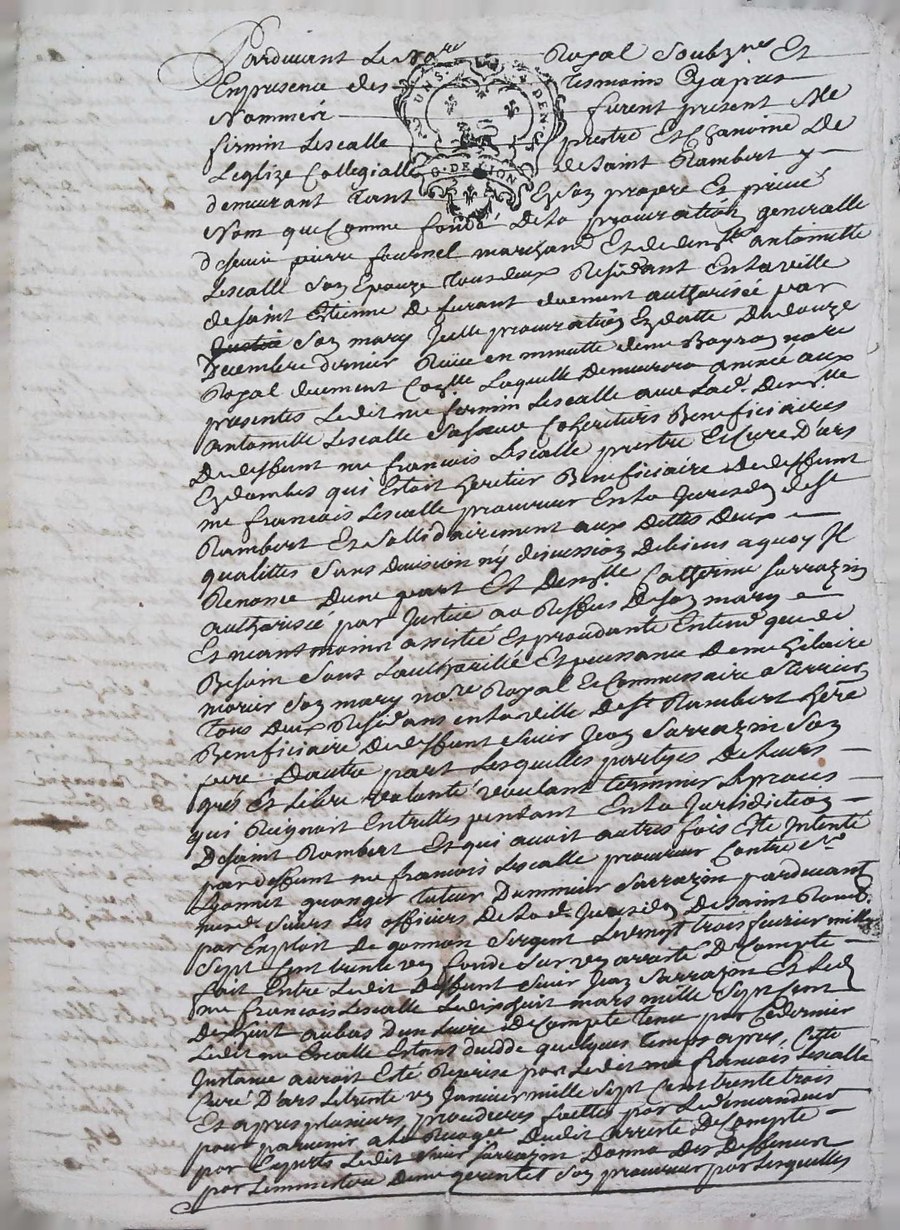 Pardevant Le No.re Royal Soubzne Et
Enpresence des Tesmoins Cyapres
Nommés furent present Me
firmin Lescalle prestre Et Chanoine De
Leglize Collegialle de Saint Rambert y
demeurant tant En Son propre Et privé
Nom que Comme fondé De la procuration generalle
de Sieur pierre fournel marchand Et de demlle antoinette
Lescalle Son Epouze tous deux Residant En la ville
de Saint Etienne De furant duement autharisée par
Son mary Jcelle procuration En datte Du douze
Decembre dernier Reüe en minutte deme Bayron no.re
Royal duement Con.lle Laquelle Demeurera annexé aux
presentes Ledit me firmin Lescalle avec Lad. Dem.lle
antoinette Lescalle Sa Sœur Coheritiers Beneficiaires
De deffunt me francois Lescalle prestre Et Cure D'ars
En dombes qui Estoit heretier Beneficiaire de deffunt
me francois Lescalle procureur En la Jurisd.on de St
Rambert Et Sollidairement aux dittes Deux
qualittes Sans Division ny discussion De biens a quoy Jl
Renonce Dune part Et Dem.lle Catherine Sarrazin
autharisée par Justice au Reffus De Son mary
Et neantmoins assistée Et procedante Entend que de
Besoin Sous Lautharitté Et puissance De me hilaire
morier Son mary no.re Royal Et Commissaire a terrier
tous Deux Resid.ans en la ville de St Rambert here
Beneficiaire De deffunt Sieur Jean Sarrazin Son
pere Dautre part Lesquelles partyes De Leurs
grés Et Libre Volonté voulant terminer Le proces
qui Reignoit Entrelles pendant En la Jurisdiction
De Saint Rambert Et qui avoit autres fois Eté Jntenté
par deffunt me francois Lescalle procureur Contre
granger tuteur Dumineur Sarrazin pardevant
Les officiers De Lad. Jurisd.on De Saint Ramb.
par Exploit de gonnon Sergent Le vingt trois fevrier mille
Sept Cent trente un fondé Sur un arreté De Compte
fait Entre Ledit Deffunt Sieur Jean Sarrazin Et Led.
me francois Lescalle Le dix huit mars mille Sept Cent
au bas Dun Livre de Compte tenu par Ce dernier
Ledit me Lescalle Estant decedé quelques temps apres Cette
Jnstance auroit Eté Reprise par Ledit me francois Lescalle
Curé D'ars Le trente un Janvier mille Sept Cent trente trois
Et apres plusieurs procedures faittes par Le demandeur
pour parvenir a Dudit arreté De Compte
par Experts Ledit Sieur Sarrazin Donna Des Deffences
par Le ministere Deme gerentet Son procureur par Lesquelles
G. DE LION